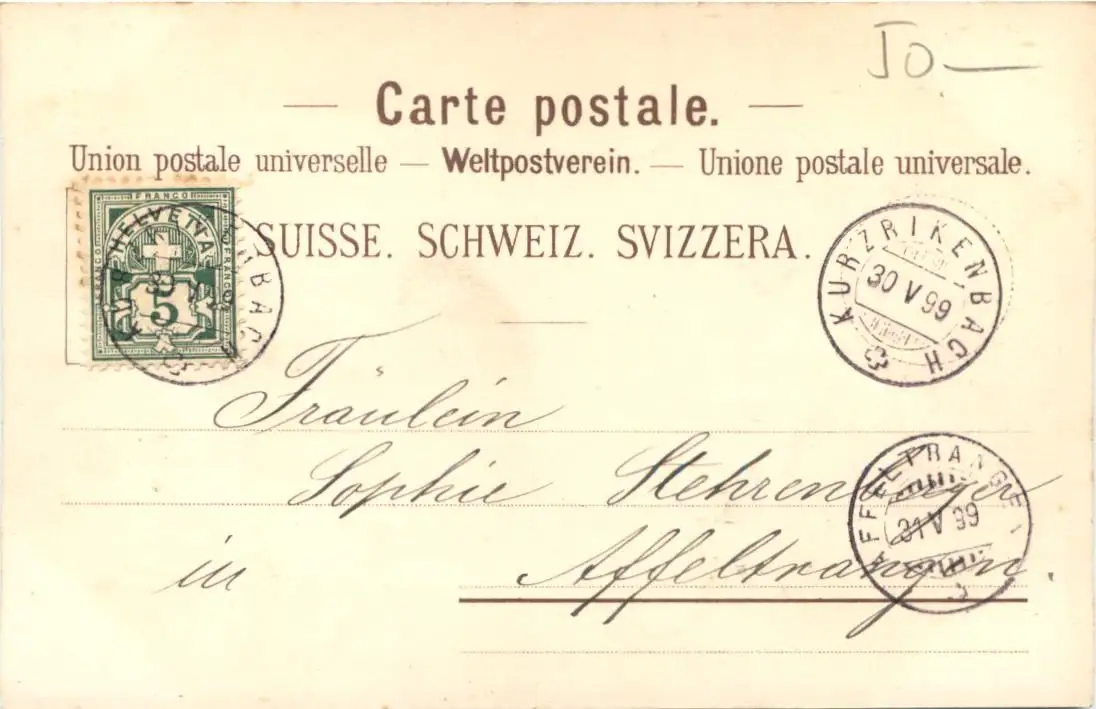 50—
— Carte postale. —
Union postale universelle — Weltpostverein. — Unione postale universale.
SUISSE. SCHWEIZ. SVIZZERA.
FRANCO
HELVETIA
FRANCO
FRANCO
5
KURZRIKENBACH
30 V 99
Fräulein
Sophie Stehrenberger
in Affeltrangen.
AFFELTRANGEN
31 V 99